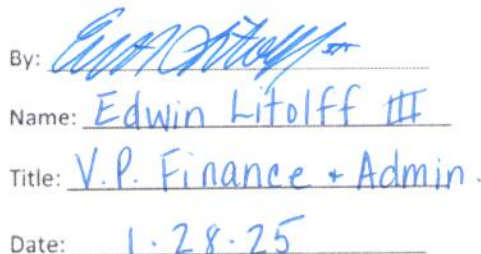 By:
Name: Edwin Litolff III
Title: V.P. Finance + Admin.
Date: 1.28.25